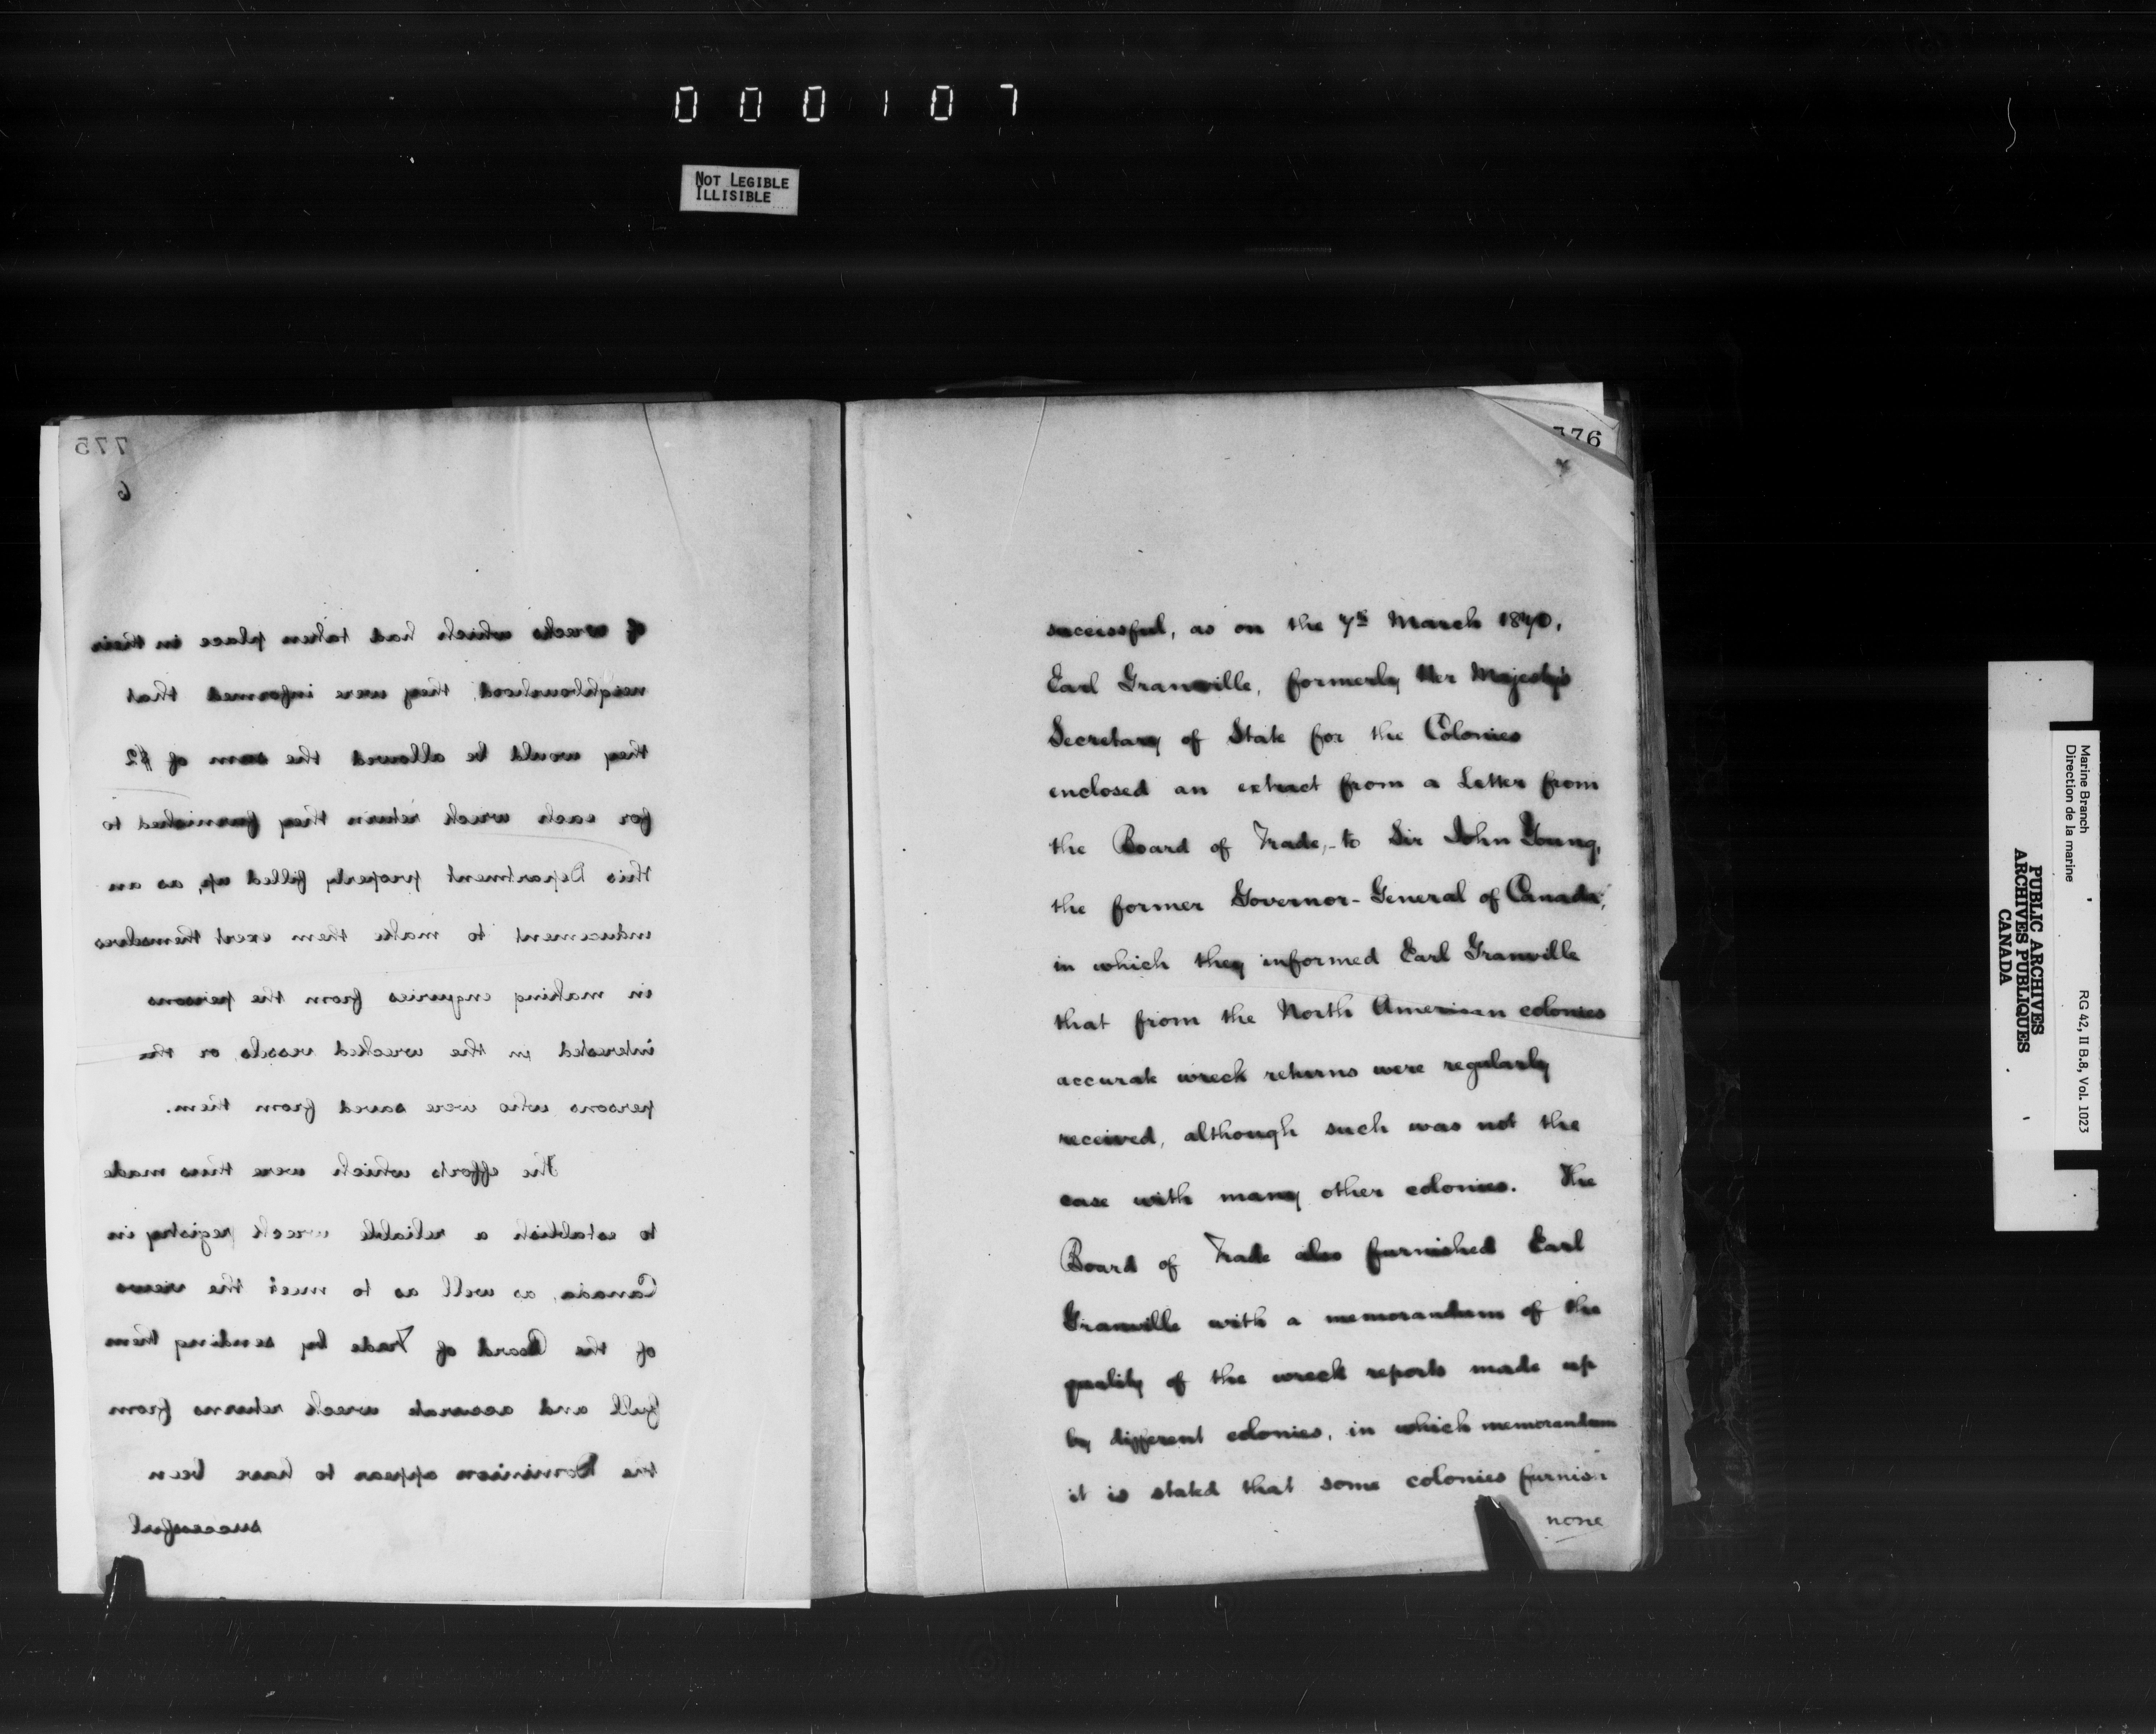 000107
NOT LEGIBLE
ILLISIBLE
775
6
of wrecks which had taken place in their
neighbourhood, they were informed that
they would be allowed the sum of $2
for each wreck return they furnished to
this Department properly filled up, as an
inducement to make them exert themselves
in making enquiries from the persons
interested in the wrecked vessels, or the
persons who were saved from them.
The efforts which were thus made
to establish a reliable wreck registry in
Canada, as well as to meet the views
of the Board of Trade by sending them
full and accurate wreck returns from
the Dominion appear to have been
successful
776
7
successful, as on the 7th March 1870,
Earl Granville, formerly Her Majesty's
Secretary of State for the Colonies
enclosed an extract from a Letter from
the Board of Trade, - to Sir John Young,
the former Governor-General of Canada,
in which they informed Earl Granville
that from the North American colonies
accurate wreck returns were regularly
received, although such was not the
case with many other colonies. The
Board of Trade also furnished Earl
Granville with a memorandum of the
quality of the wreck reports made up
by different colonies, in which memorandum
it is stated that some colonies furnish
none
Marine Branch
Direction de la marine
RG 42, II B.8, Vol. 1023
PUBLIC ARCHIVES
ARCHIVES PUBLIQUES
CANADA